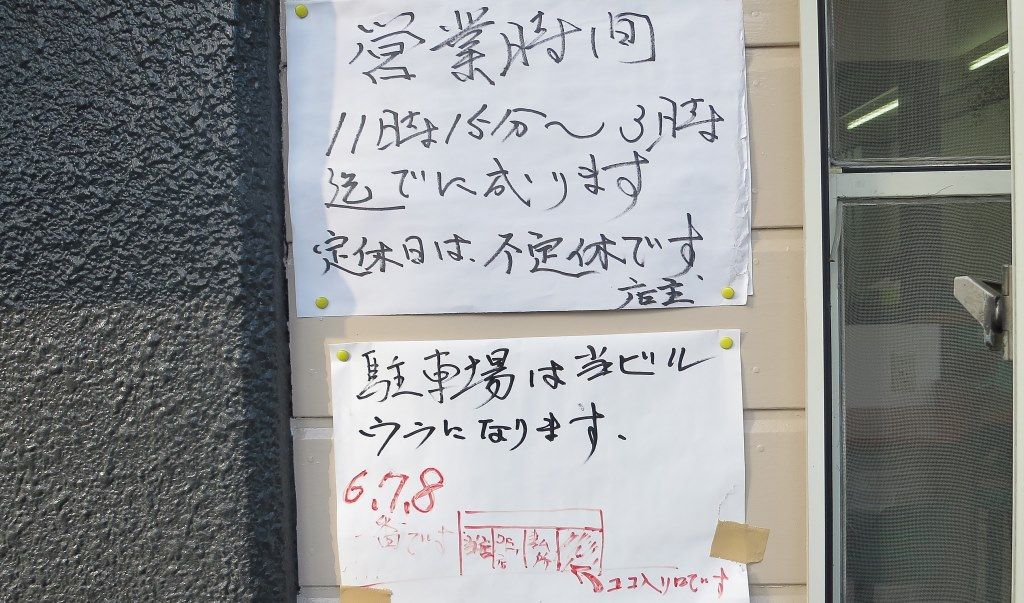 営業時間
11時15分～3時
迄でに成ります
定休日は、不定休です
店主
駐車場は当ビル
ウラになります.
6.7.8
番です
ココ入り口です